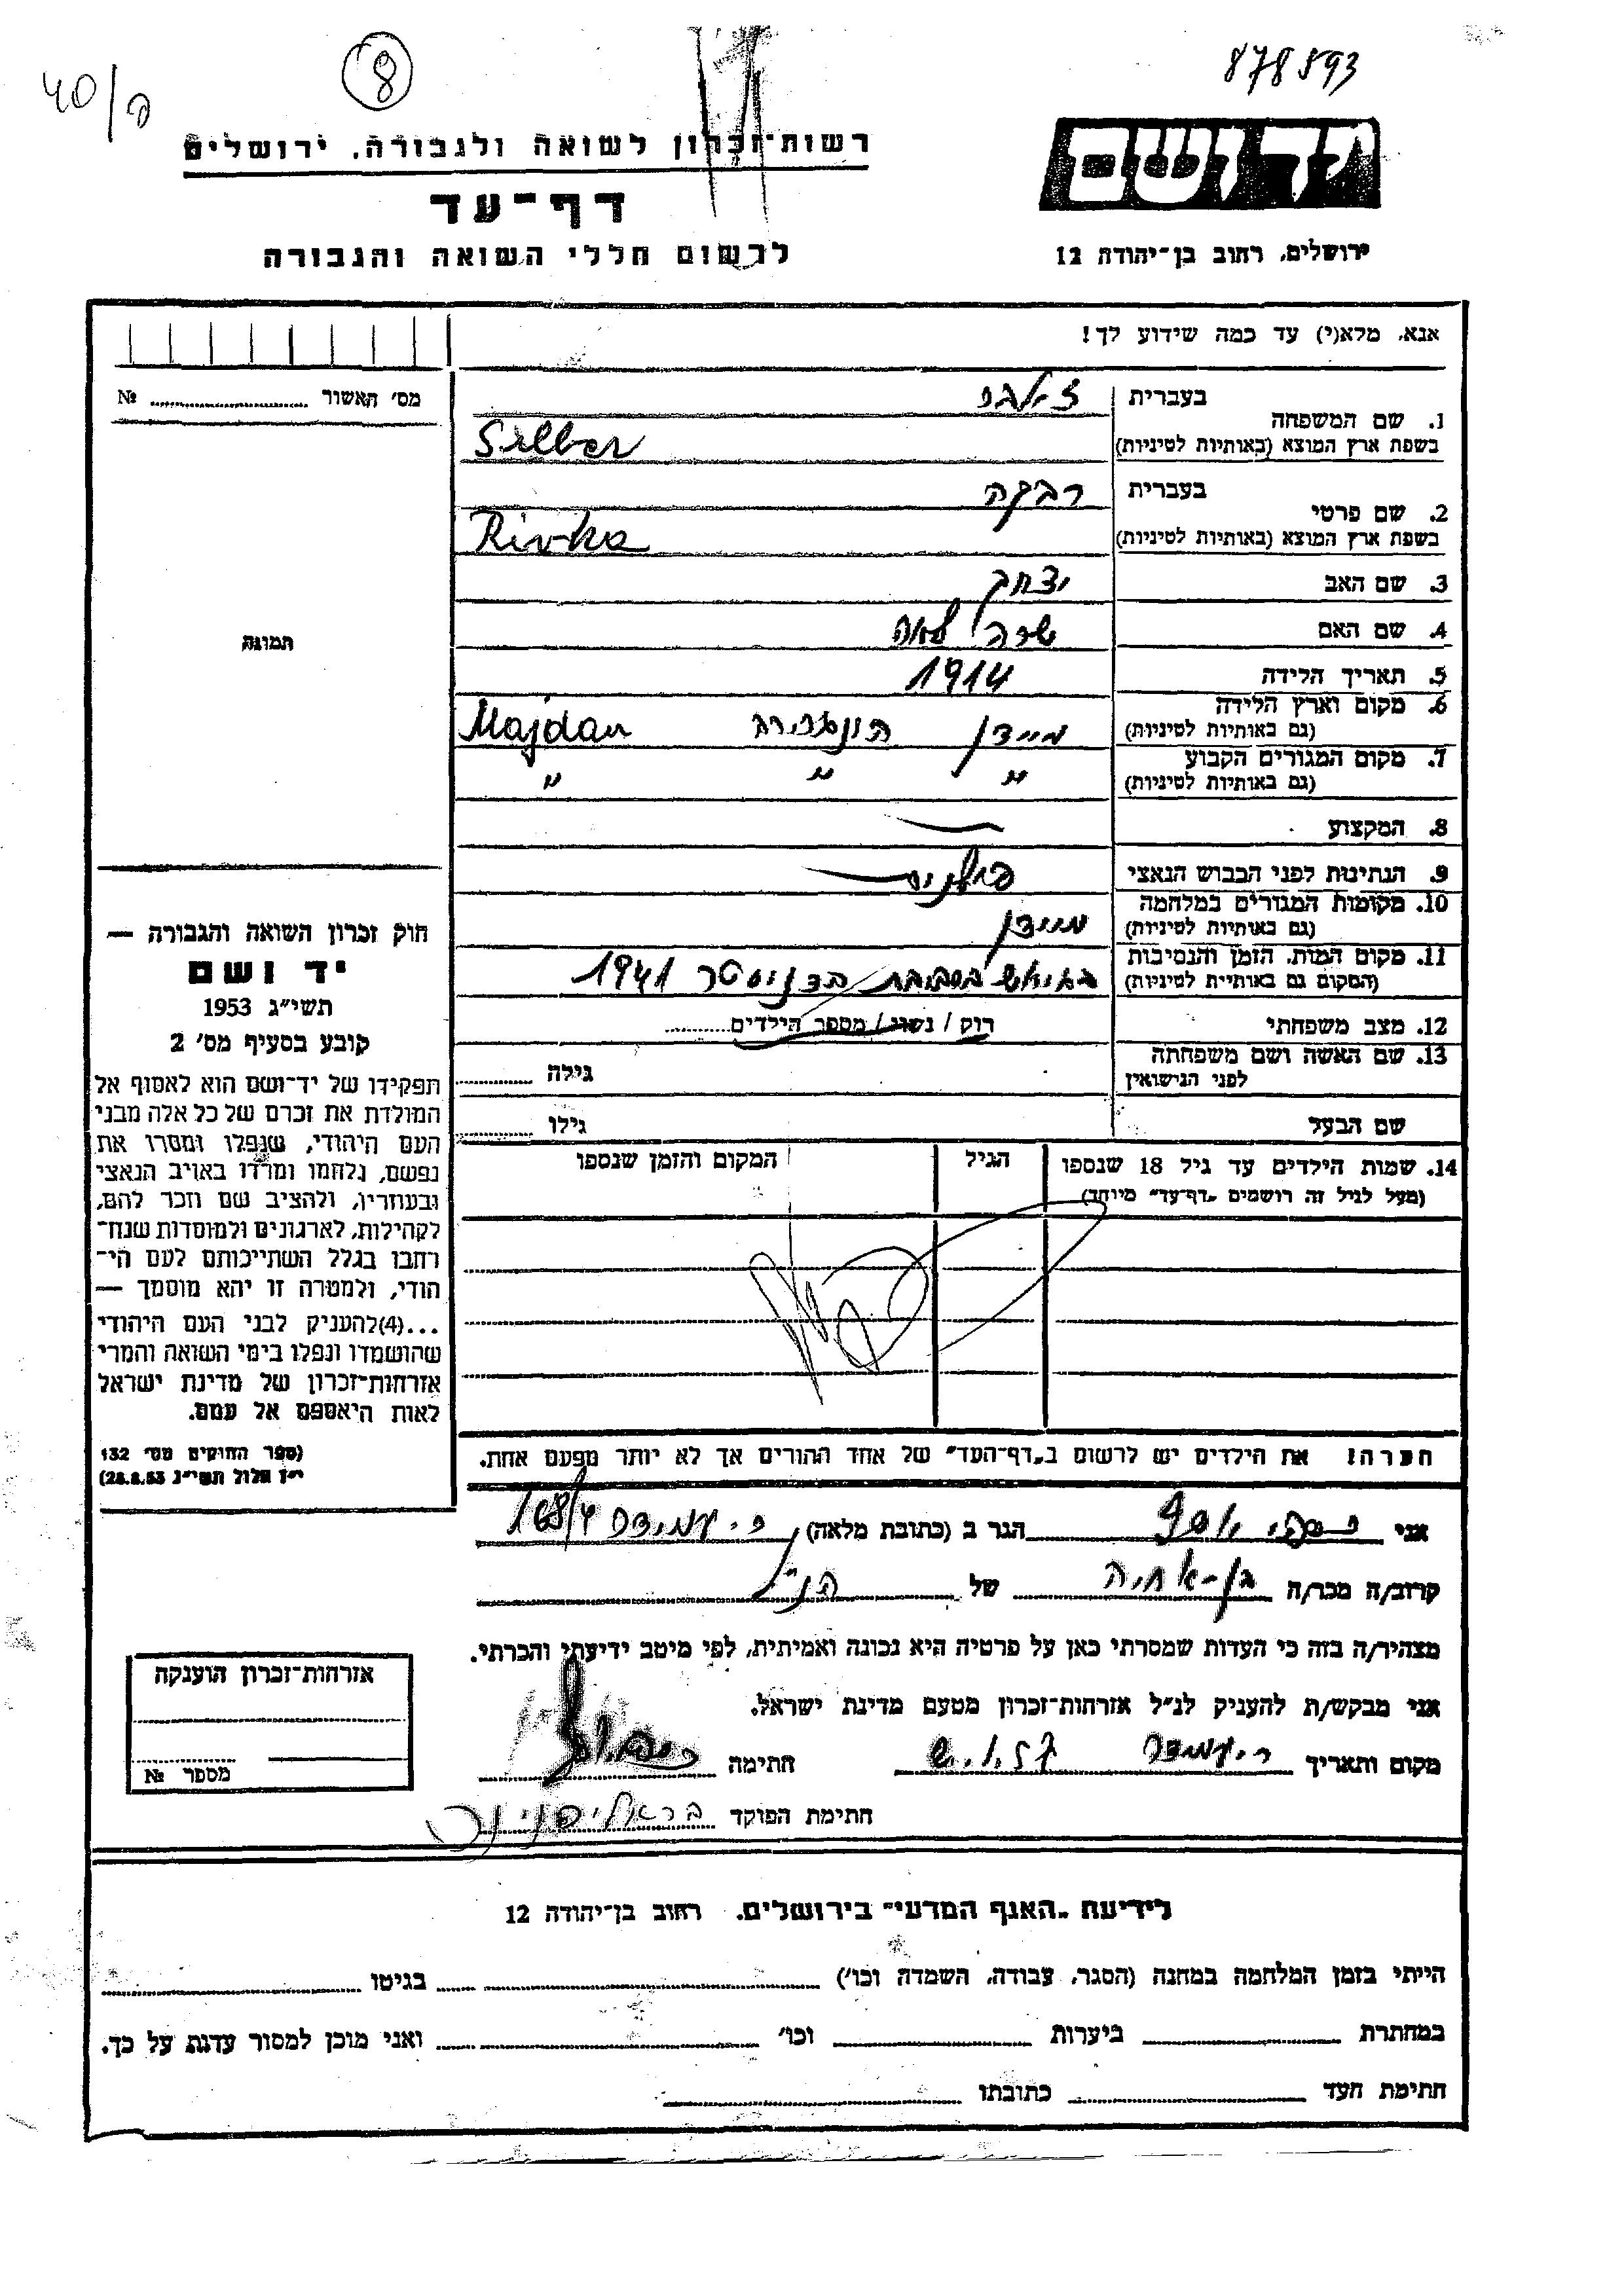 878593
8
40/ק
יד ושם
רשות־זכרון לשואה ולגבורה. ירושלים
דף־עד
לרשום חללי השואה והגבורה
ירושלים, רחוב בן־יהודה 12
אנא, מלא(י) עד כמה שידוע לך!
מס' האשור № ........
1. שם המשפחה
בעברית זילבר
בשפת ארץ המוצא (באותיות לטיניות) Silber
2. שם פרטי
בעברית רבקה
בשפת ארץ המוצא (באותיות לטיניות) Rivka
3. שם האב יצחק
4. שם האם שרה לאה
תמונה
5. תאריך הלידה 1914
6. מקום וארץ הלידה
(גם באותיות לטיניות) מיידן הונגריה Majdan
7. מקום המגורים הקבוע
(גם באותיות לטיניות) " " "
8. המקצוע —
9. הנתינות לפני הכבוש הנאצי
10. מקומות המגורים במלחמה
(גם באותיות לטיניות) מיידן
11. מקום המות, הזמן והנסיבות
(המקום גם באותיות לטיניות) 1941
12. מצב משפחתי רוק / נשוי / מספר הילדים........
13. שם האשה ושם משפחתה
לפני הנישואין גילה ........
שם הבעל גילו ........
14. שמות הילדים עד גיל 18 שנספו הגיל המקום והזמן שנספו
(מעל לגיל זה רושמים „דף־עד" מיוחד)
הערה: את הילדים יש לרשום ב„דף־העד" של אחד ההורים אך לא יותר מפעם אחת.
חוק זכרון השואה והגבורה —
יד ושם
תשי"ג 1953
קובע בסעיף מס' 2
תפקידו של יד־ושם הוא לאסוף אל
המולדת את זכרם של כל אלה מבני
העם היהודי, שנפלו ומסרו את
נפשם, נלחמו ומרדו באויב הנאצי
ובעוזריו, ולהציב שם וזכר להם,
לקהילות, לארגונים ולמוסדות שנח־
רבו בגלל השתייכותם לעם הי־
הודי, ולמטרה זו יהא מוסמך —
...(4)להעניק לבני העם היהודי
שהושמדו ונפלו בימי השואה והמרי
אזרחות־זכרון של מדינת ישראל
לאות היאספם אל עמם.
(ספר החוקים מס' 132
י"ז אלול תשי"ג 28.8.53)
אני יוסף הגר ב (כתובת מלאה) 168/4
קרוב/ה מכר/ה בן-אחיה של הנ"ל
מצהיר/ה בזה כי העדות שמסרתי כאן על פרטיה היא נכונה ואמיתית, לפי מיטב ידיעתי והכרתי.
אני מבקש/ת להעניק לנ"ל אזרחות־זכרון מטעם מדינת ישראל.
מקום ותאריך חתימה
חתימת הפוקד
אזרחות־זכרון הוענקה
מספר №
לידיעת „האגף המדעי" בירושלים. רחוב בן־יהודה 12
הייתי בזמן המלחמה במחנה (הסגר, עבודה, השמדה וכו') ........ בגיטו ........
במחתרת ........ ביערות ........ וכו' ........ ואני מוכן למסור עדות על כך.
חתימת העד ........ כתובתו ........